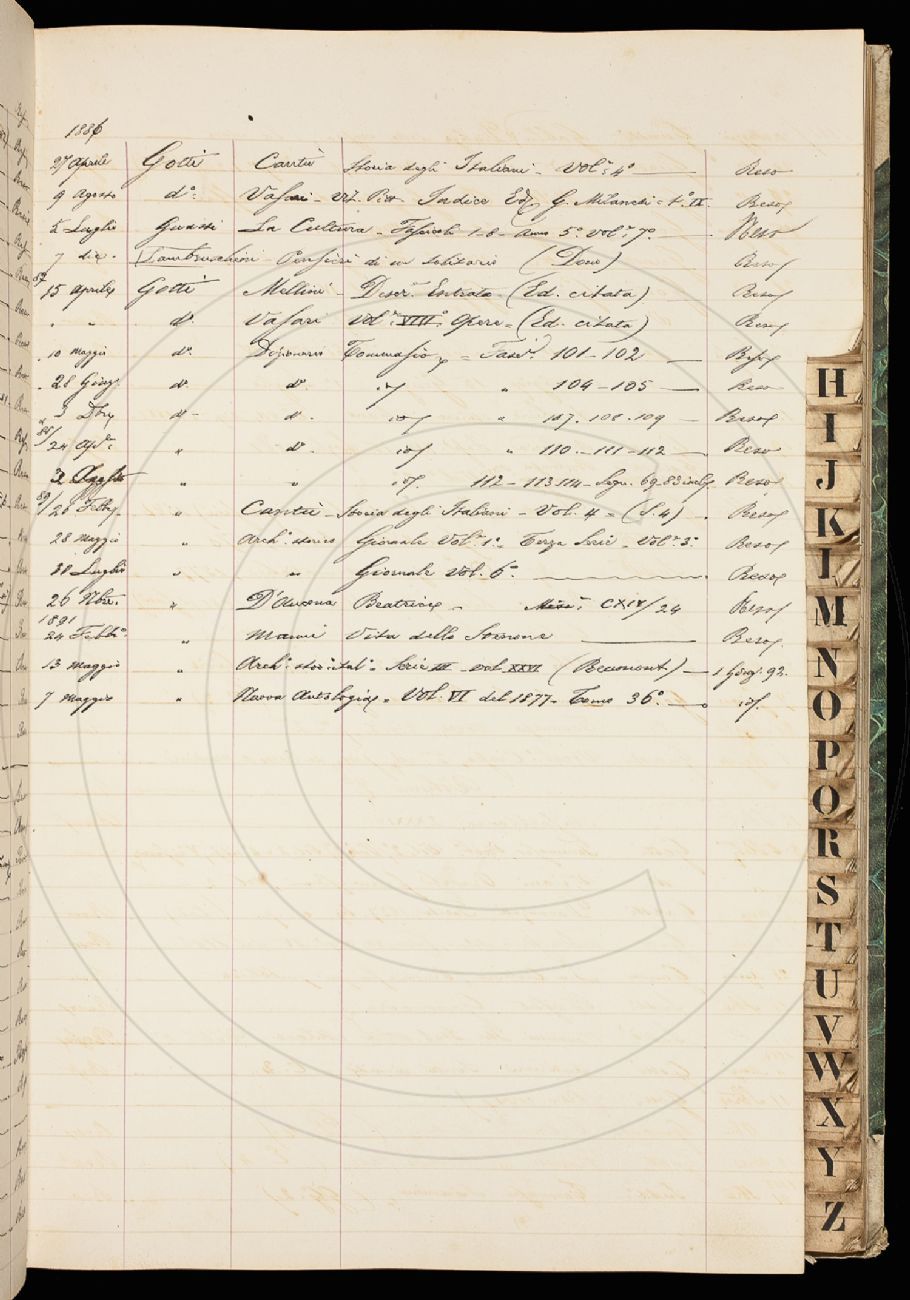 1886
27 Aprile Gotti Cantù Storia degli Italiani - Vol. 4° Reso
9 Agosto d.° Vasari - Vit. Indice Ed. G. Milanesi - t. IX Reso
5 Luglio Guasti La Cultura - Fascicoli 1-8 - anno 5° vol. 7° Reso
7 dic. Lambruschini - Pensieri di un solitario (Dono) Reso
87
15 Aprile Gotti Mellini - Descr. Entrata - (Ed. citata) Reso
" " d.° Vasari Vol. VIII° Opere - (Ed. citata) Reso
10 Maggio d.° Dizionario Tommaseo = Fasc. 101-102 Reso
28 Giug. d.° d.° id. " 104-105 Reso
3 d.° d.° id. " 107. 108. 109 Reso
88/
24 Ap. " d.° id. " 110 - 111 - 112 Reso
Agosto " " id. 112 - 113. 114 - 69. 83 Reso
89/
26 Febb. " Cantù - Storia degli Italiani - Vol. 4 - (S. 4) Reso
28 Maggio " Arch. storico Giornale Vol. 1° - Terza Serie - Vol. 3° Reso
Luglio " " Giornale Vol. 6° Reso
26 Nbre. " D'Ancona Beatrice - Misc. CXIV/24 Reso
1891
24 Febb. " Manni Vita dello Stenone Reso
13 Maggio " Arch. stor. ital. - Serie III - vol. XXVI (Reumont) 1 Giug. 92.
7 Maggio " Nuova Antologia - Vol. VI del 1877 - Tomo 36° id.
H
I
J
K
L
M
N
O
P
Q
R
S
T
U
V
W
X
Y
Z